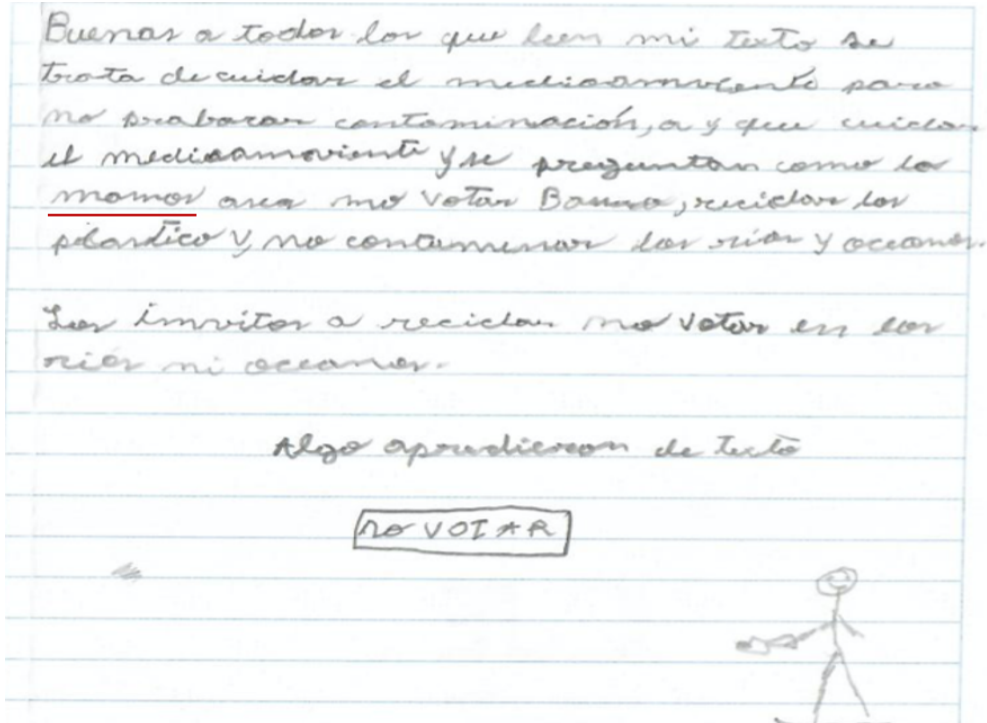 Buenas a todos los que leen mi texto se
trata de cuidar el medioamviente para
no prabacar contaminación, a y que cuidar
el medioamoviente y se preguntan como lo
mamos asea no votar Basura, reciclar los
pilastico y, no contaminar los ríos y oceanos.
Los invitos a reciclar no votar en los
ríos ni oceanos.
Algo apredieron de texto
no VOTAR